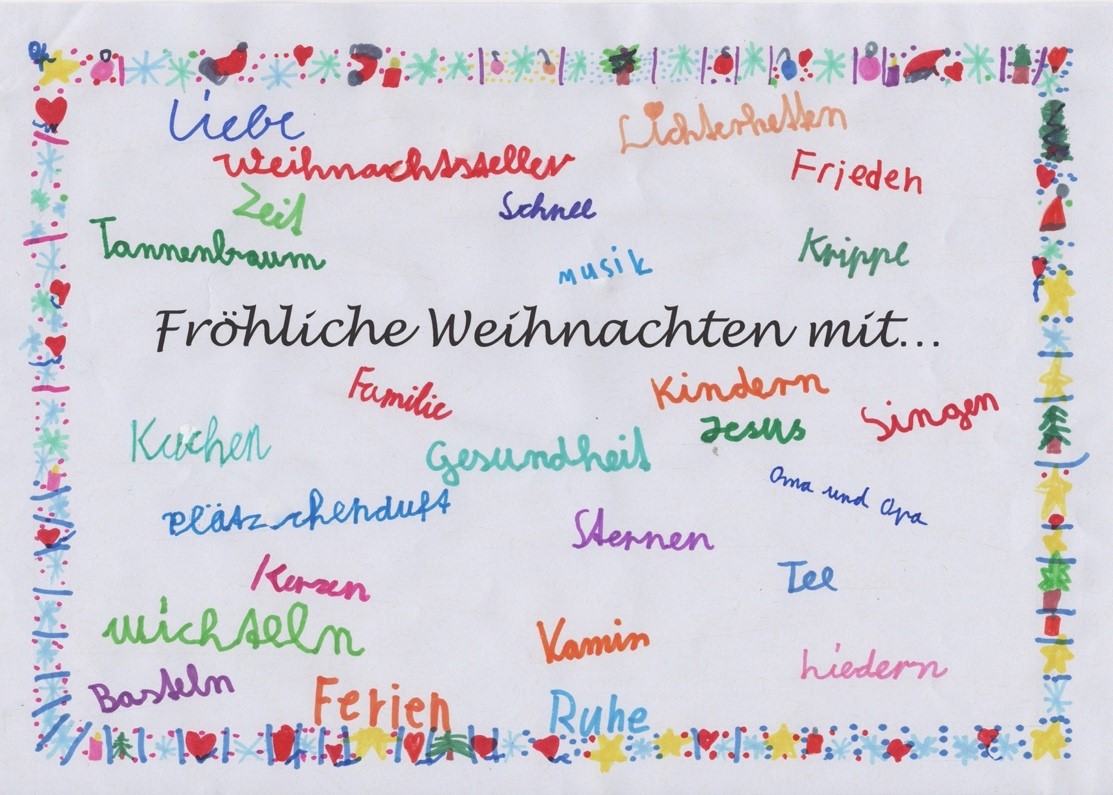 Liebe
Lichterketten
Weihnachtsteller
Frieden
Zeit
Schnee
Tannenbaum
Krippe
Musik
Fröhliche Weihnachten mit...
Familie
Kindern
Singen
Kuchen
Jesus
Gesundheit
Oma und Opa
Plätzchenduft
Sternen
Kerzen
Tee
wichteln
Kamin
Liedern
Basteln
Ferien
Ruhe